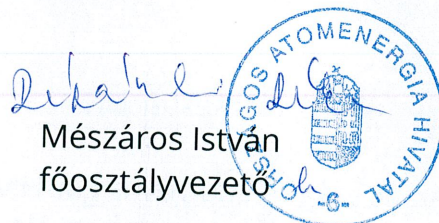 Mészáros István
főosztályvezető
ORSZÁGOS ATOMENERGIA HIVATAL
-6-